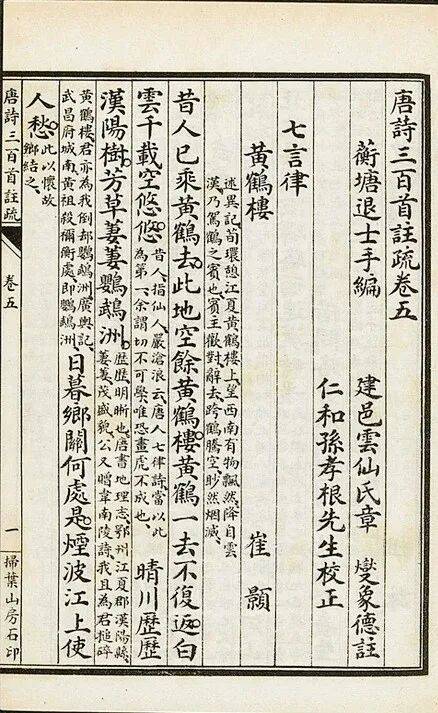 唐詩三百首註疏卷五
蘅塘退士手編 建邑雲仙氏章 燮象德註
仁和孫孝根先生校正
七言律
黃鶴樓 崔顥
述異記荀環憩江夏黃鶴樓上望西南有物飄然降自雲
漢乃駕鶴之賓也賓主歡對辭去跨鶴騰空眇然烟滅
昔人已乘黃鶴去此地空餘黃鶴樓黃鶴一去不復返白
雲千載空悠悠
昔人指仙人嚴滄浪云唐人七律詩當以此
為第一余謂切不可學唯恐畫虎不成也
晴川歷歷
漢陽樹芳草萋萋鸚鵡洲
歷歷明晰也唐書地理志鄂州江夏郡漢陽縣
萋萋茂盛貌公又贈韋南陵詩我且為君搥碎
黃鶴樓君亦為我倒却鸚鵡洲廣輿記
武昌府城南黃祖殺禰衡處即鸚鵡洲
日暮鄉關何處是煙波江上使
人愁
此以懷故
鄉結之
唐詩三百首註疏 卷五 一 掃葉山房石印